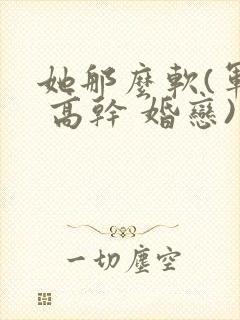 她那麼軟(軍
高幹 婚戀)
一切塵空